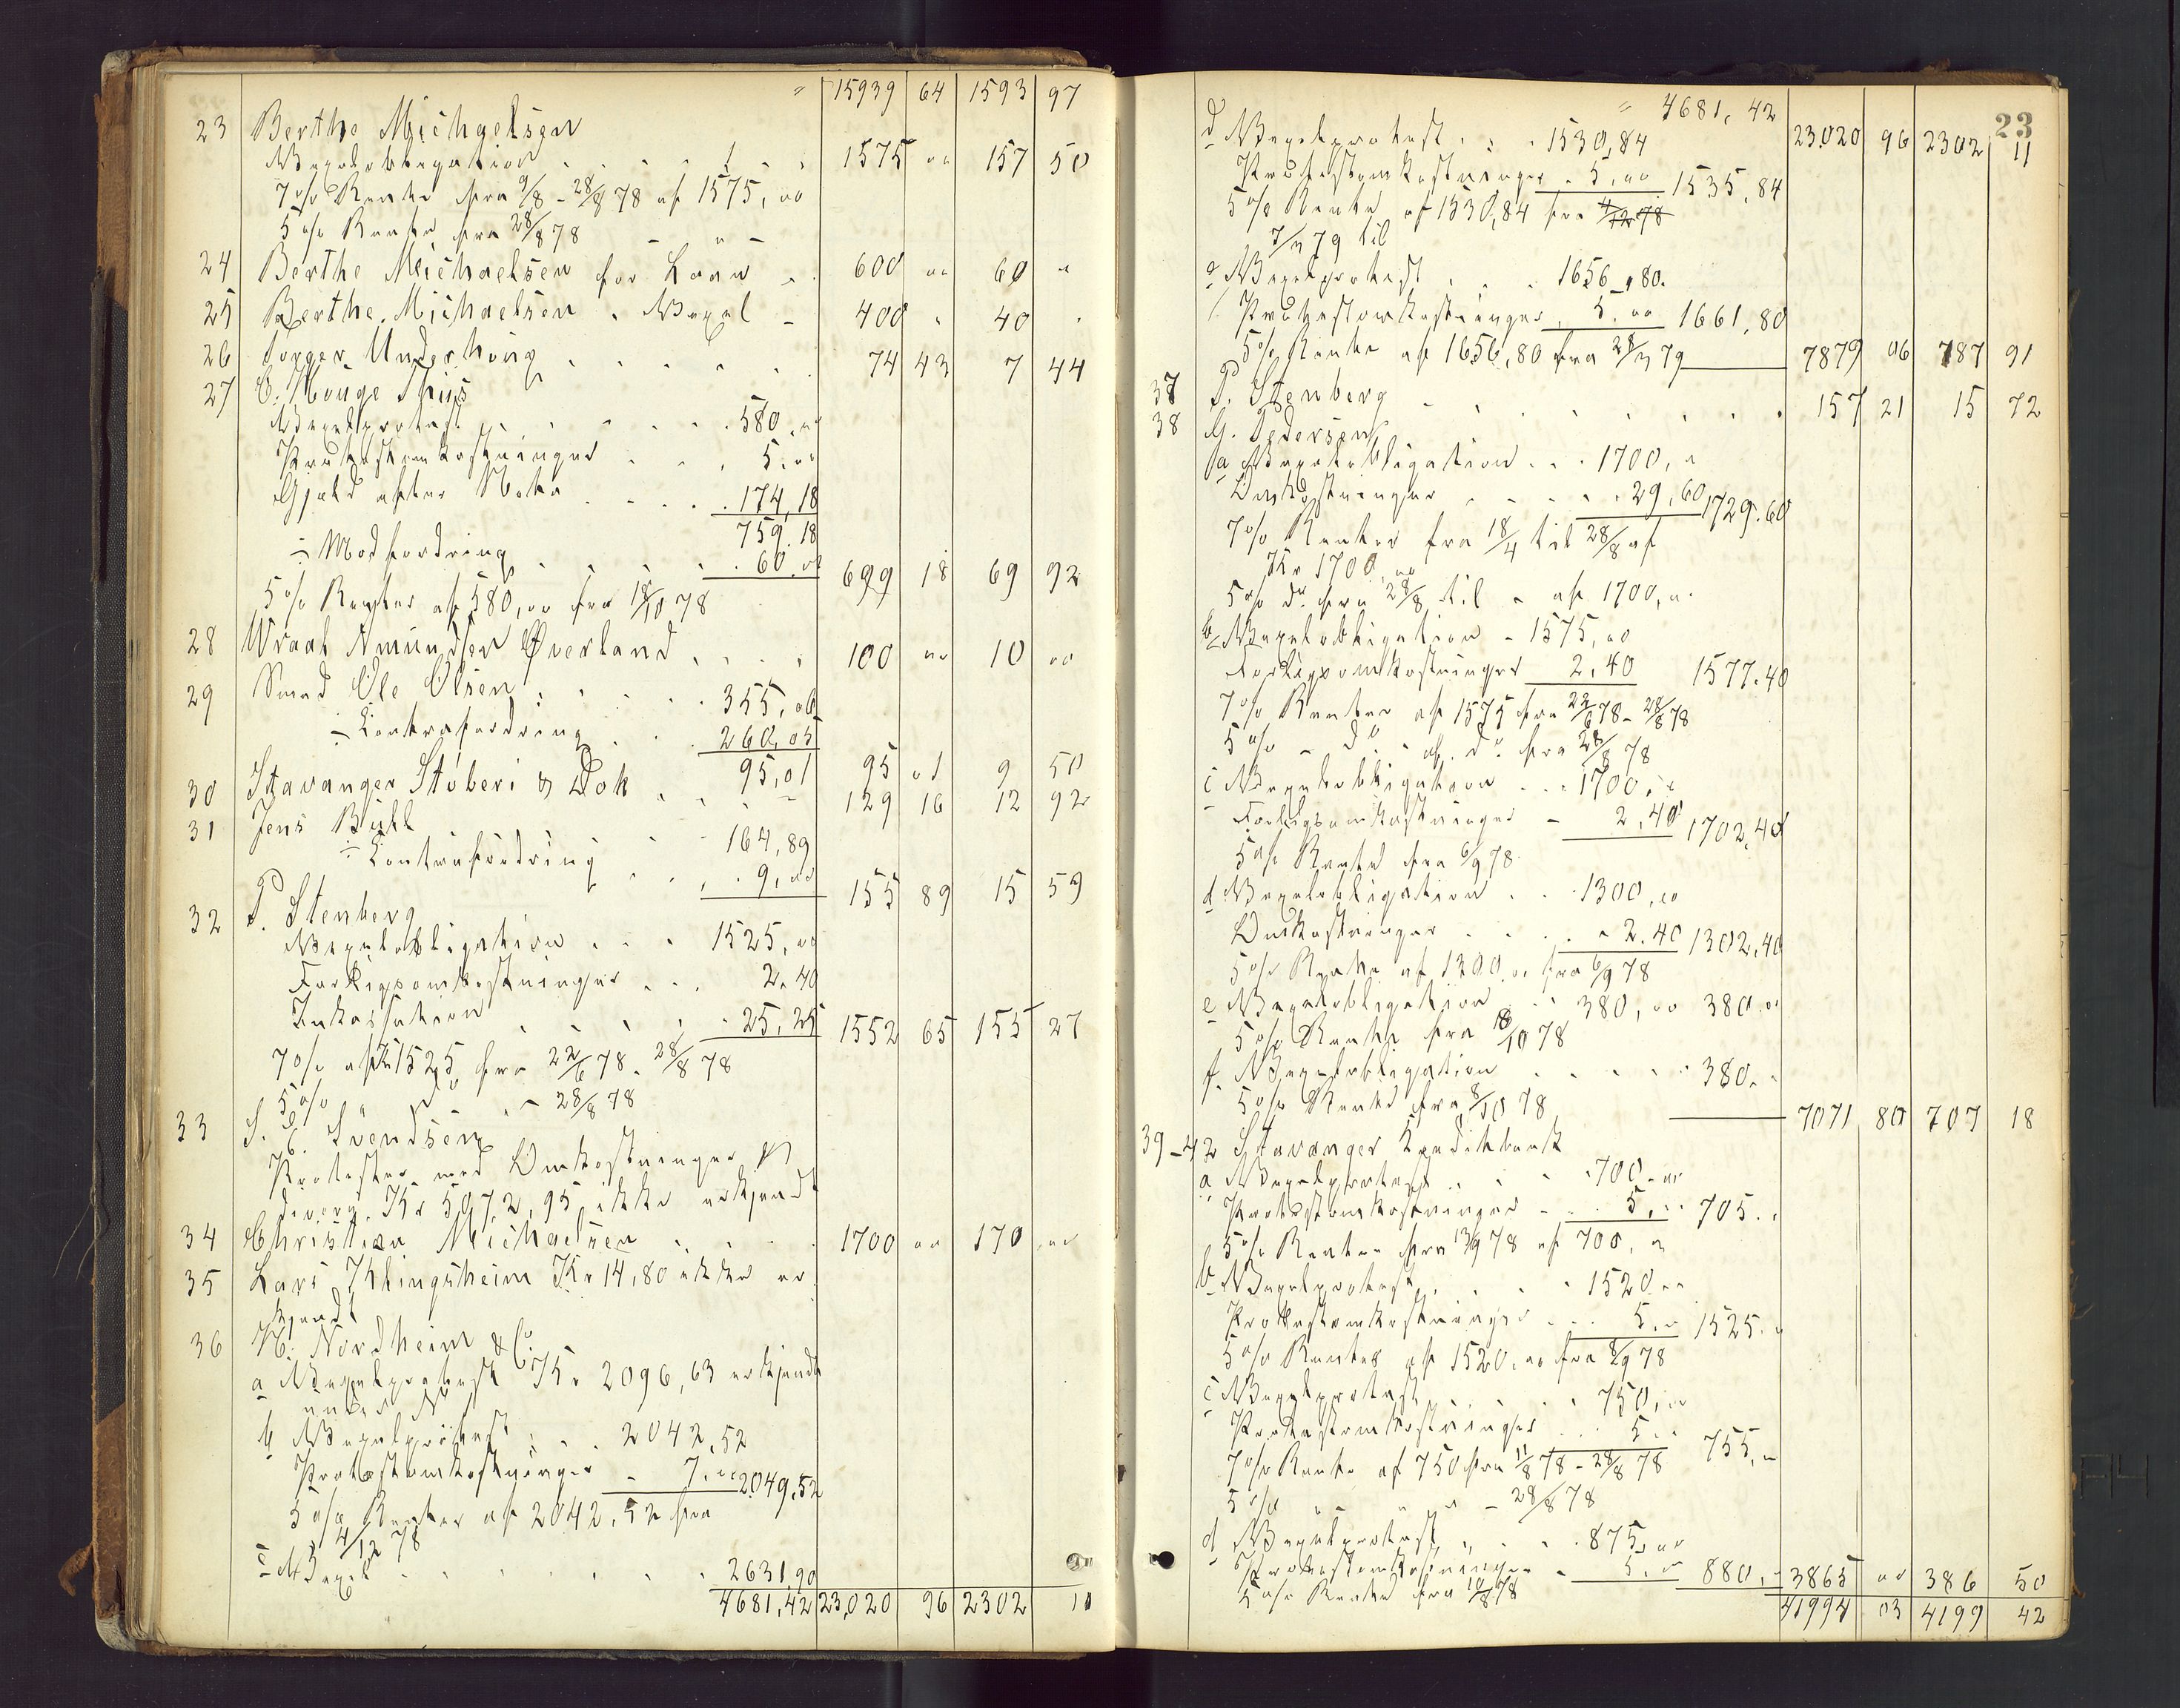 " 15939 64 1593 97
23 Berthe Michaelsen
Vexelobligation . . . . . . 1575 oo 157 50
7 o/o Rente fra 9/8 - 28/8 78 af 1575, oo
5 o/o Rente fra 28/8 78 - " -
24 Berthe Michaelsen for Laan - . 600 oo 60 "
25 Berthe Michaelsen . Vexel - 400 . 40 .
26 Torger Underhoug . . . . . 74 43 7 44
27 O. Houge Thiis
Vexelprotest . . . . . 580, oo
Protestomkostninger . . . 5, oo
Gjæld efter Nota . . . . 174, 18
759. 18
÷ Modfordring . . . . . 60. oo 699 18 69 92
5 o/o Renter af 580, oo fra 18/10 78
28 Wraal Amundsen Øverland . . . . 100 oo 10 oo
29 Smed Ole Olsen . . . . . 355, 06
÷ Contrafordring . . . 260, 05
95, 01 95 01 9 50
30 Stavanger Støberi & Dok . . . - 129 16 12 92
31 Jens Buhl . . . 164, 89
÷ Contrafordring . . . . 9, oo 155 89 15 59
32 P. Stenberg
Vexelobligation . . . 1525, oo
Forligsomkostninger . . . 2. 40
Inkassation . . . . . 25, 25 1552 65 155 27
7 o/o af Kr 1525 fra 22/6 78 - 28/8 78
5 o/o " do . - 28/8 78
33 S. E. Svendsen
Protester med Omkostninger
diverg. Kr 5072, 95 ikke erkjendt
34 Christian Michaelsen . . . . 1700 oo 170 oo
35 Lars Klingsheim Kr 14, 80 ikke er
kjendt
36 N. Nordheim & Co
a Vexelprotest Kr 2096, 63 erkjendt
under N
b Vexelprotest . . . 2042, 52
Protestomkostninger - 7. oo 2049, 52
5 o/o Renter af 2042. 52 fra
4/12 78
c Vexel . . . . . . . 2631, 90
4681, 42 23,020 96 2302 11
23
" 4681, 42 23.020 96 2302 11
d Vexelprotest . . . 1530, 84
Protestomkostninger . 5, oo 1535, 84
5 o/o Rente af 1530, 84 fra 4/12 78
7/3 79 til
e Vexelprotest . . . 1656, 80.
Protestomkostninger . 5. oo 1661, 80
5 o/o Rente af 1656, 80 fra 28/3 79 7879 06 787 91
37 P. Stenberg . . . . . . . 157 21 15 72
38 G. Pedersen
a Vexelobligation . . . 1700, "
Omkostninger . . . . . 29, 60 1729. 60
7 o/o Renter fra 18/4 til 28/8 af
Kr 1700, oo
5 o/o do fra 28/8 til " af 1700, ".
b Vexelobligation - 1575, oo
Forligsomkostninger 2, 40 1577. 40
7 o/o Renter af 1575 fra 22/6 78 - 28/8 78
5 o/o - do . af. do. fra 28/8 78
c Vexelobligation . . . 1700, "
Forligsomkostninger - 2, 40 1702, 40
5 o/o Rente fra 6/9 78
d Vexelobligation . . . 1300, oo
Omkostninger . . . . . 2. 40 1302, 40
5 o/o Rente af 1300. oo fra 6/9 78
e Vexelobligation . . 380, oo 380. oo
5 o/o Rente fra 18/10 78
f. Vexelobligation . . . . . 380. .
5 o/o Rente fra 8/10 78 7071 80 707 18
39 - 42 Stavanger Kreditbank
a Vexelprotest . . . . 700 - oo
Protestomkostninger - . . 5, . . 705. .
5 o/o Renter fra 13/9 78 af 700, "
b Vexelprotest . . . . 1520. oo
Protestomkostninger . . . 5. " 1525. "
5 o/o Renter af 1520. oo fra 8/9 78
c Vexelprotest . . . . 750, oo
Protestomkostninger . . . 5. . 755, "
7 o/o Rente af 750 fra 11/8 78 - 28/8 78
5 o/o " " " - 28/8 78
d Vexelprotest . . . . 875, oo
Protestomkostninger . 5. o 880, - 3865 oo 386 50
5 o/o Rente fra 10/8 78
41994 03 4199 42